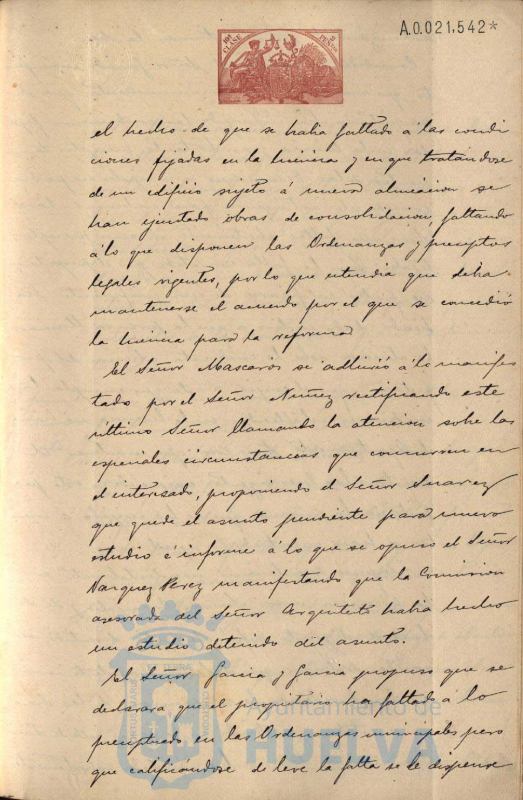 A.0.021,542*
10ª CLASE 2 PESETAS
el hecho de que se habia faltado á las condi
ciones fijadas en la licencia y en que tratándose
de un edificio sujeto á nueva alineacion se
han ejecutado obras de consolidacion, faltando
á lo que disponen las Ordenanzas y preceptos
legales vigentes, por lo que entendia que debia
mantenerse el acuerdo por el que se concedió
la licencia para la reforma
El Señor Mascarós se adhirió á lo manifes
tado por el Señor Nuñez rectificando este
último Señor llamando la atencion sobre las
especiales circunstancias que concurren en
el interesado, proponiendo el Señor Suarez
que quede el asunto pendiente para nuevo
estudio é informe á lo que se opuso el Señor
Vazquez Perez manifestando que la Comision
asesorada del Señor Arquitecto habia hecho
un estudio detenido del asunto.
El Señor Garcia y Garcia propuso que se
declarara que el propietario ha faltado á lo
preceptuado en las Ordenanzas municipales pero
que calificándose de leve la falta se le dispense
Ayuntamiento de
HUELVA